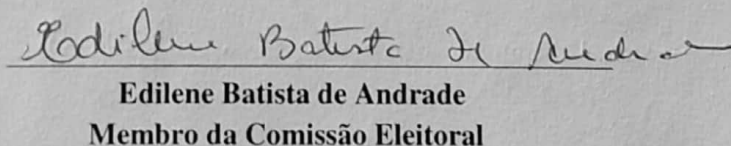 Edilene Batista de Andrade
Edilene Batista de Andrade
Membro da Comissão Eleitoral